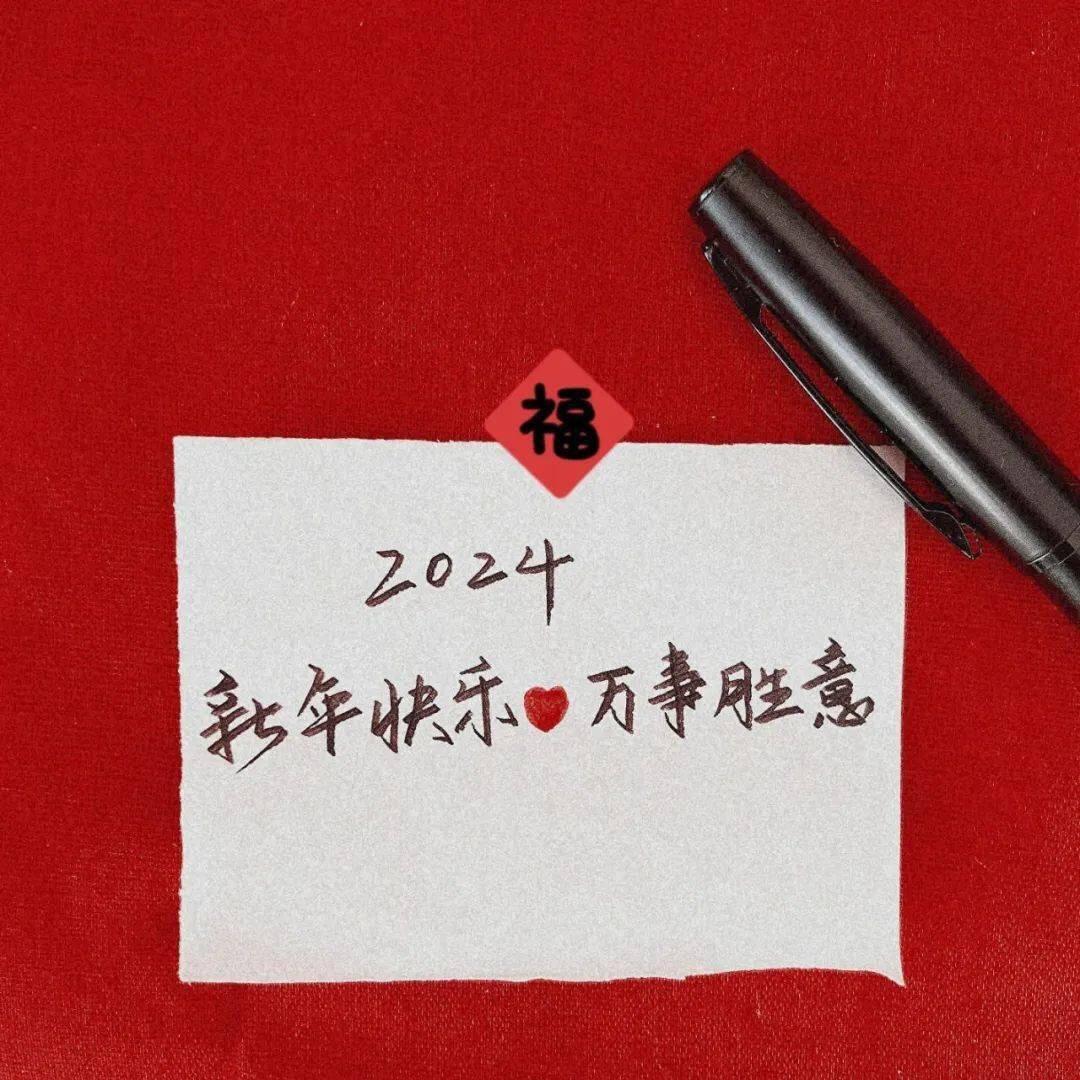 福
2024
新年快乐❤万事胜意